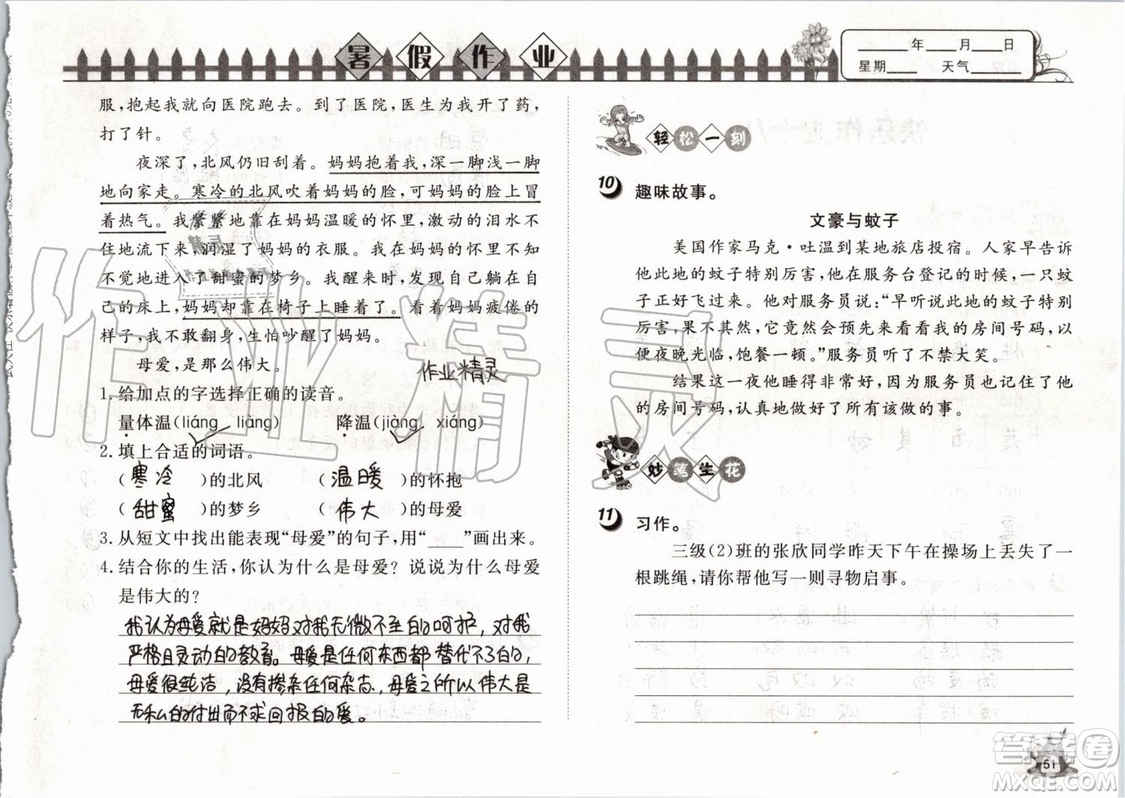 暑假作业
____年____月____日
星期____ 天气____
服，抱起我就向医院跑去。到了医院，医生为我开了药，
打了针。
夜深了，北风仍旧刮着。妈妈抱着我，一脚深一脚浅一脚
地向家走。寒冷的北风吹着妈妈的脸，可妈妈的脸上冒
着热气。我紧紧地靠在妈妈温暖的怀里，激动的泪水不
住地流下来，润湿了妈妈的衣服。我在妈妈的怀里不知
不觉地进入了甜蜜的梦乡。我醒来时，发现我躺在自
己的床上，妈妈却靠在椅子上睡着了。看着妈妈疲倦的
样子，我不敢翻身，生怕吵醒了妈妈。
母爱，是那么伟大。
作业精灵
1. 给加点的字选择正确的读音。
量体温(liáng liàng) 降温(jiàng xiáng)
2. 填上合适的词语。
(寒冷)的北风 (温暖)的怀抱
(甜蜜)的梦乡 (伟大)的母爱
3. 从短文中找出能表现“母爱”的句子，用“____”画出来。
4. 结合你的生活，你认为什么是母爱？说说为什么母爱
是伟大的？
我认为母爱就是妈妈对我无微不至的呵护，对我
严格且灵动的教育。母爱是任何东西都替代不了的
母爱很纯洁，没有掺杂任何杂志，母爱之所以伟大是
无私的付出而不求回报的爱。
轻松一刻
10 趣味故事。
文豪与蚊子
美国作家马克·吐温到某地旅店投宿。人家早告诉
他此地的蚊子特别厉害，他在服务台登记的时候，一只蚊
子正好飞过来。他对服务员说：“早听说此地的蚊子特别
厉害，果然如此，它竟然会预先来看看我的房间号码，以
便夜晚光临，饱餐一顿。”服务员听了不禁大笑。
结果这一夜他睡得非常好，因为服务员也记住了他
的房间号码，认真地做好了所有该做的事。
妙笔生花
11 习作。
三级(2)班的张欣同学昨天下午在操场上丢失了一
根跳绳，请你帮他写一则寻物启事。
作业精灵
答案卷
MXQE.COM
51